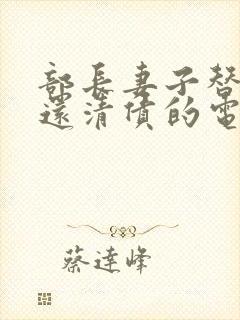 部長妻子替
還清債的電
蔡達峰